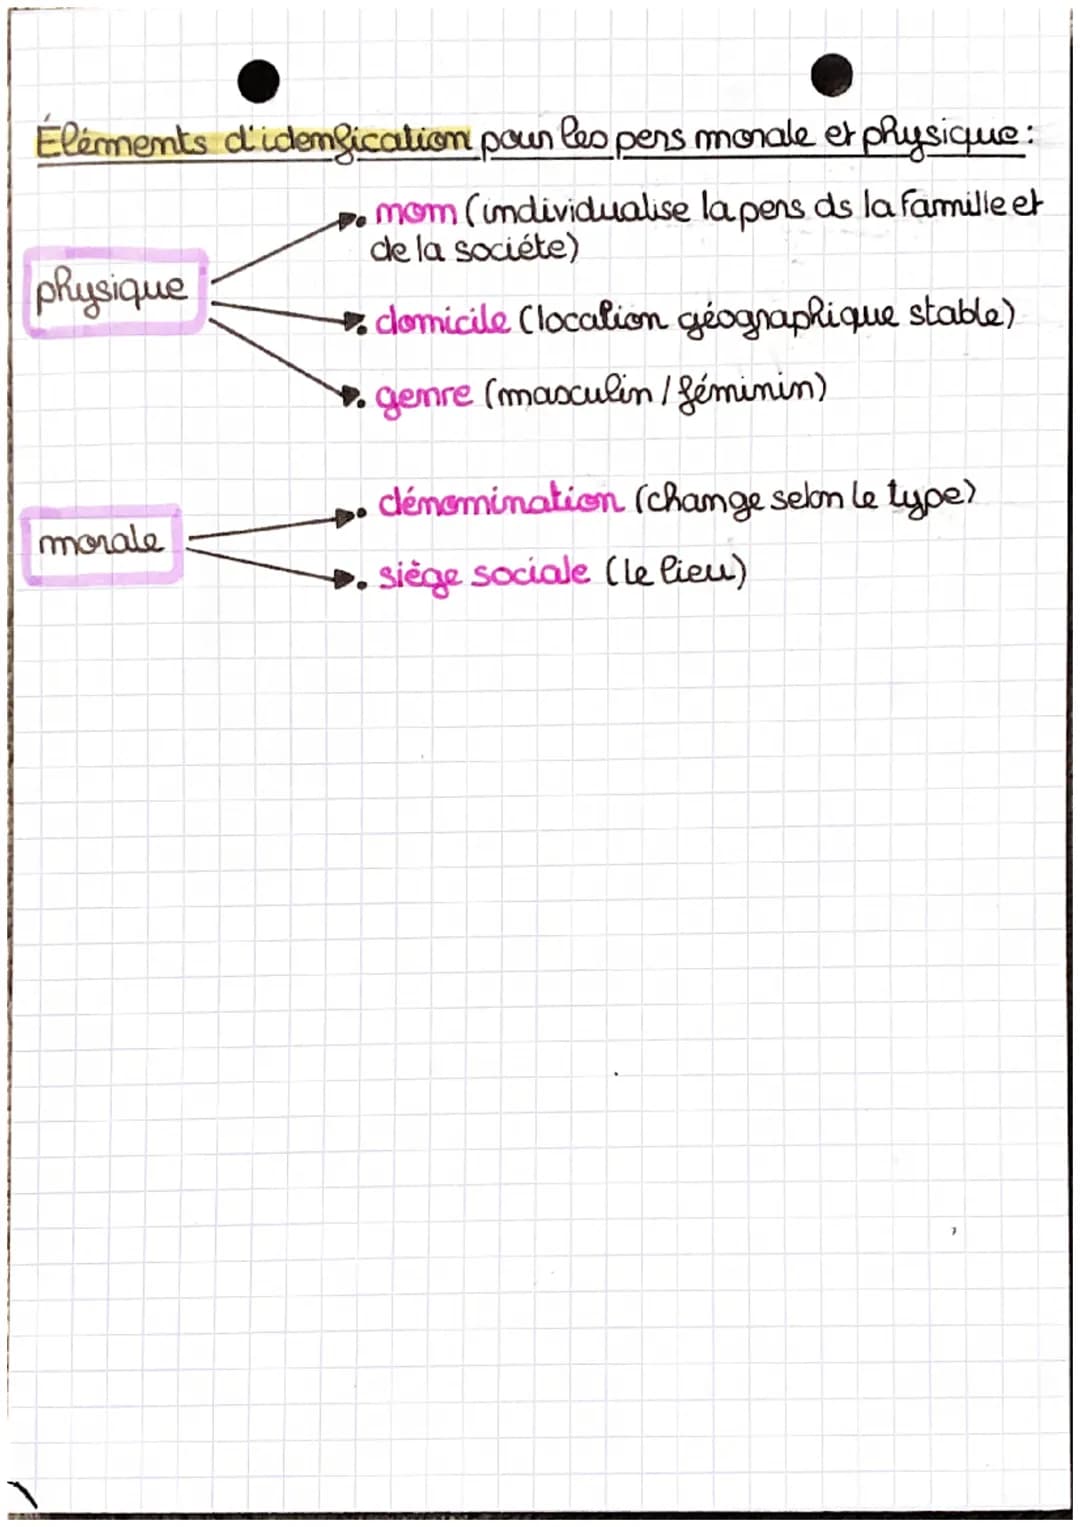 Éléments d'idenfication pour les pers morale et physique :
physique
• nom (individualise la pers ds la famille et
de la société)
• domicile (location géographique stable)
• genre (masculin / féminin)
morale
• dénomination (change selon le type)
• siège sociale (le lieu)